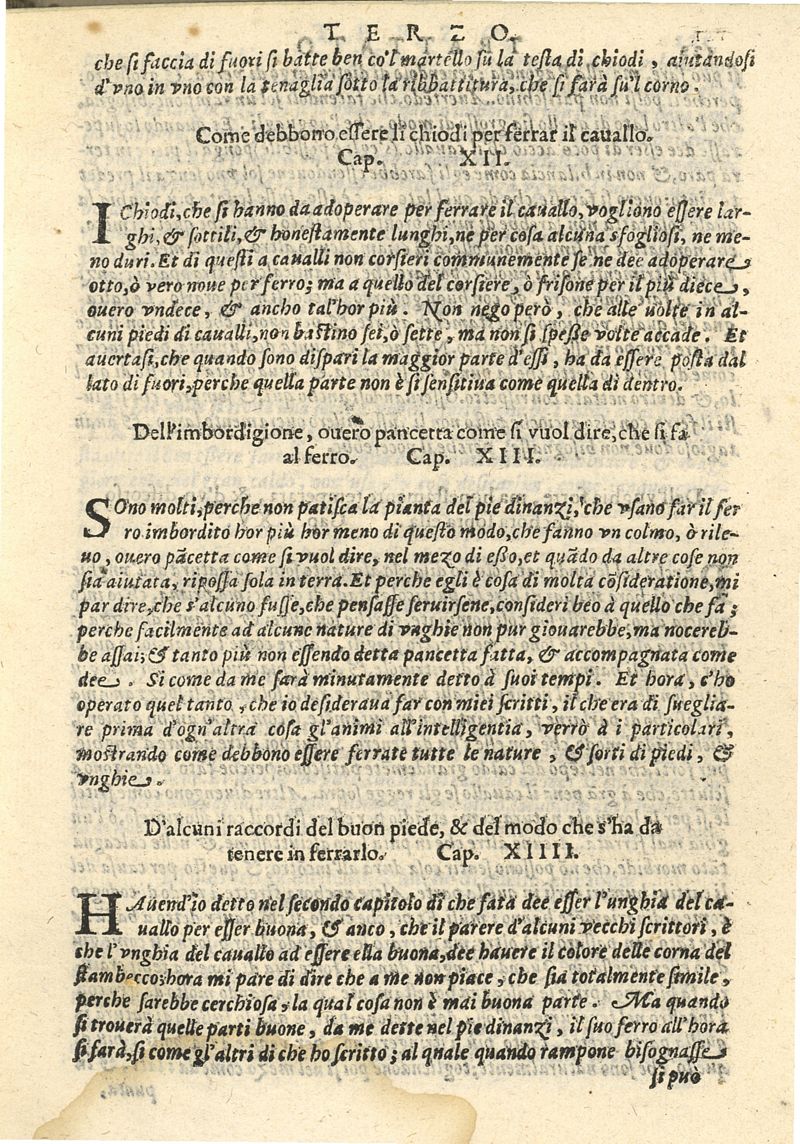 TERZO
che si faccia di fuori si batte ben co'l martello sù la testa di chiodi, aiutandosi
d'vno in vno con la tenaglia sotto la ribbattitura, che si farà su'l corno.
Come debbono essere li chiodi per ferrar il cauallo.
Cap. XII.
I Chiodi, che si hanno da adoperare per ferrare il cauallo, vogliono essere lar-
ghi, & sottili, & honestamente lunghi, ne per cosa alcuna sfogliosi, ne me-
no duri. Et di questi a caualli non corsieri communemente se ne dee adoperare
otto, ò vero noue per ferro; ma a quello del corsiere, ò frisone per il più diece,
ouero vndece, & ancho tal'hor più. Non nego però, che alle uolte in al-
cuni piedi di caualli, non bastino sei, ò sette, ma non sì spesse volte accade. Et
auertasi, che quando sono dispari la maggior parte d'essi, ha da essere posta dal
lato di fuori, perche quella parte non è sì sensitiua come quella di dentro.
Dell'imbordigione, ouero pancetta come si vuol dire, che si fa
al ferro. Cap. XIII.
SOno molti, perche non patisca la pianta del pie dinanzi, che vsano far il fer
ro imbordito hor più hor meno di questo modo, che fanno vn colmo, ò rile-
uo, ouero pãcetta come si vuol dire, nel mezo di esso, et quãdo da altre cose non
sia aiutata, riposſa sola in terra. Et perche egli è cosa di molta cõsideratione, mi
par dire, che s'alcuno fusse, che pensasse seruirsene, consideri beo à quello che fa;
perche facilmente ad alcune nature di vnghie non pur giouarebbe, ma nocereb-
be assai; & tanto più non essendo detta pancetta fatta, & accompagnata come
dee. Si come da me sarà minutamente detto à suoi tempi. Et hora, c'ho
operato quel tanto, che io desideraua far con miei scritti, il che era di sueglia-
re prima d'ogn'altra cosa gl'animi all'intelligentia, verrò à i particolari,
mostrando come debbono essere ferrate tutte le nature, & sorti di piedi, &
vnghie.
D'alcuni raccordi del buon piede, & del modo che s'ha da
tenere in ferrarlo. Cap. XIIII.
HAuend'io detto nel secondo capitolo di che fata dee esser l'unghia del ca-
uallo per esser buona, & anco, che il parere d'alcuni vecchi scrittori, è
che l'vnghia del cauallo ad essere ella buona, dee hauere il colore delle corna del
stambecco; hora mi pare di dire che a me non piace, che sia totalmente simile,
perche sarebbe cerchiosa, la qual cosa non è mai buona parte. Ma quando
si trouerà quelle parti buone, da me dette nel pie dinanzi, il suo ferro all'hora
si farà, si come gl'altri di che ho scritto; al quale quando rampone bisognasse
si può